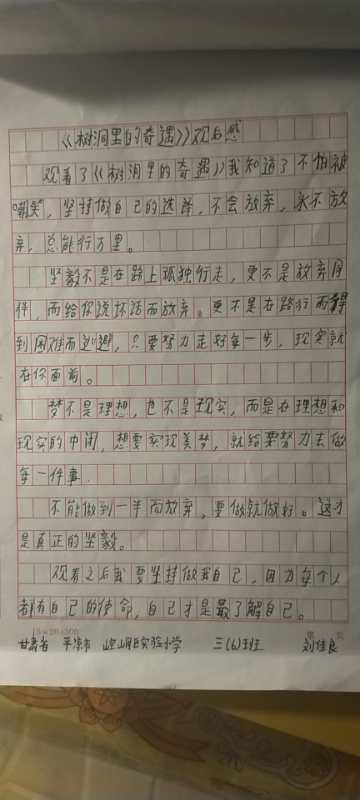 《树洞里的奇遇》观后感
观看了《树洞里的奇遇》我知道了不怕被
嘲笑，坚持做自己的选择，不会放弃，永不放
弃，总能行万里。
坚毅不是在路上孤独行走，更不是放弃同
伴，而给你说坏话而放弃。更不是在路行而得
到困难而逃避，只要努力走好每一步，现实就
在你面前。
梦不是理想，也不是现实，而是在理想和
现实的中间，想要实现美梦，就给要努力去做
每一件事。
不能做到一半而放弃，要做就做好。这才
是真正的坚毅。
观看之后我要坚持做我自己，因为每个人
都有自己的使命，自己才是最了解自己。
甘肃省 平凉市 崆峒区实验小学 三(6)班 刘佳良